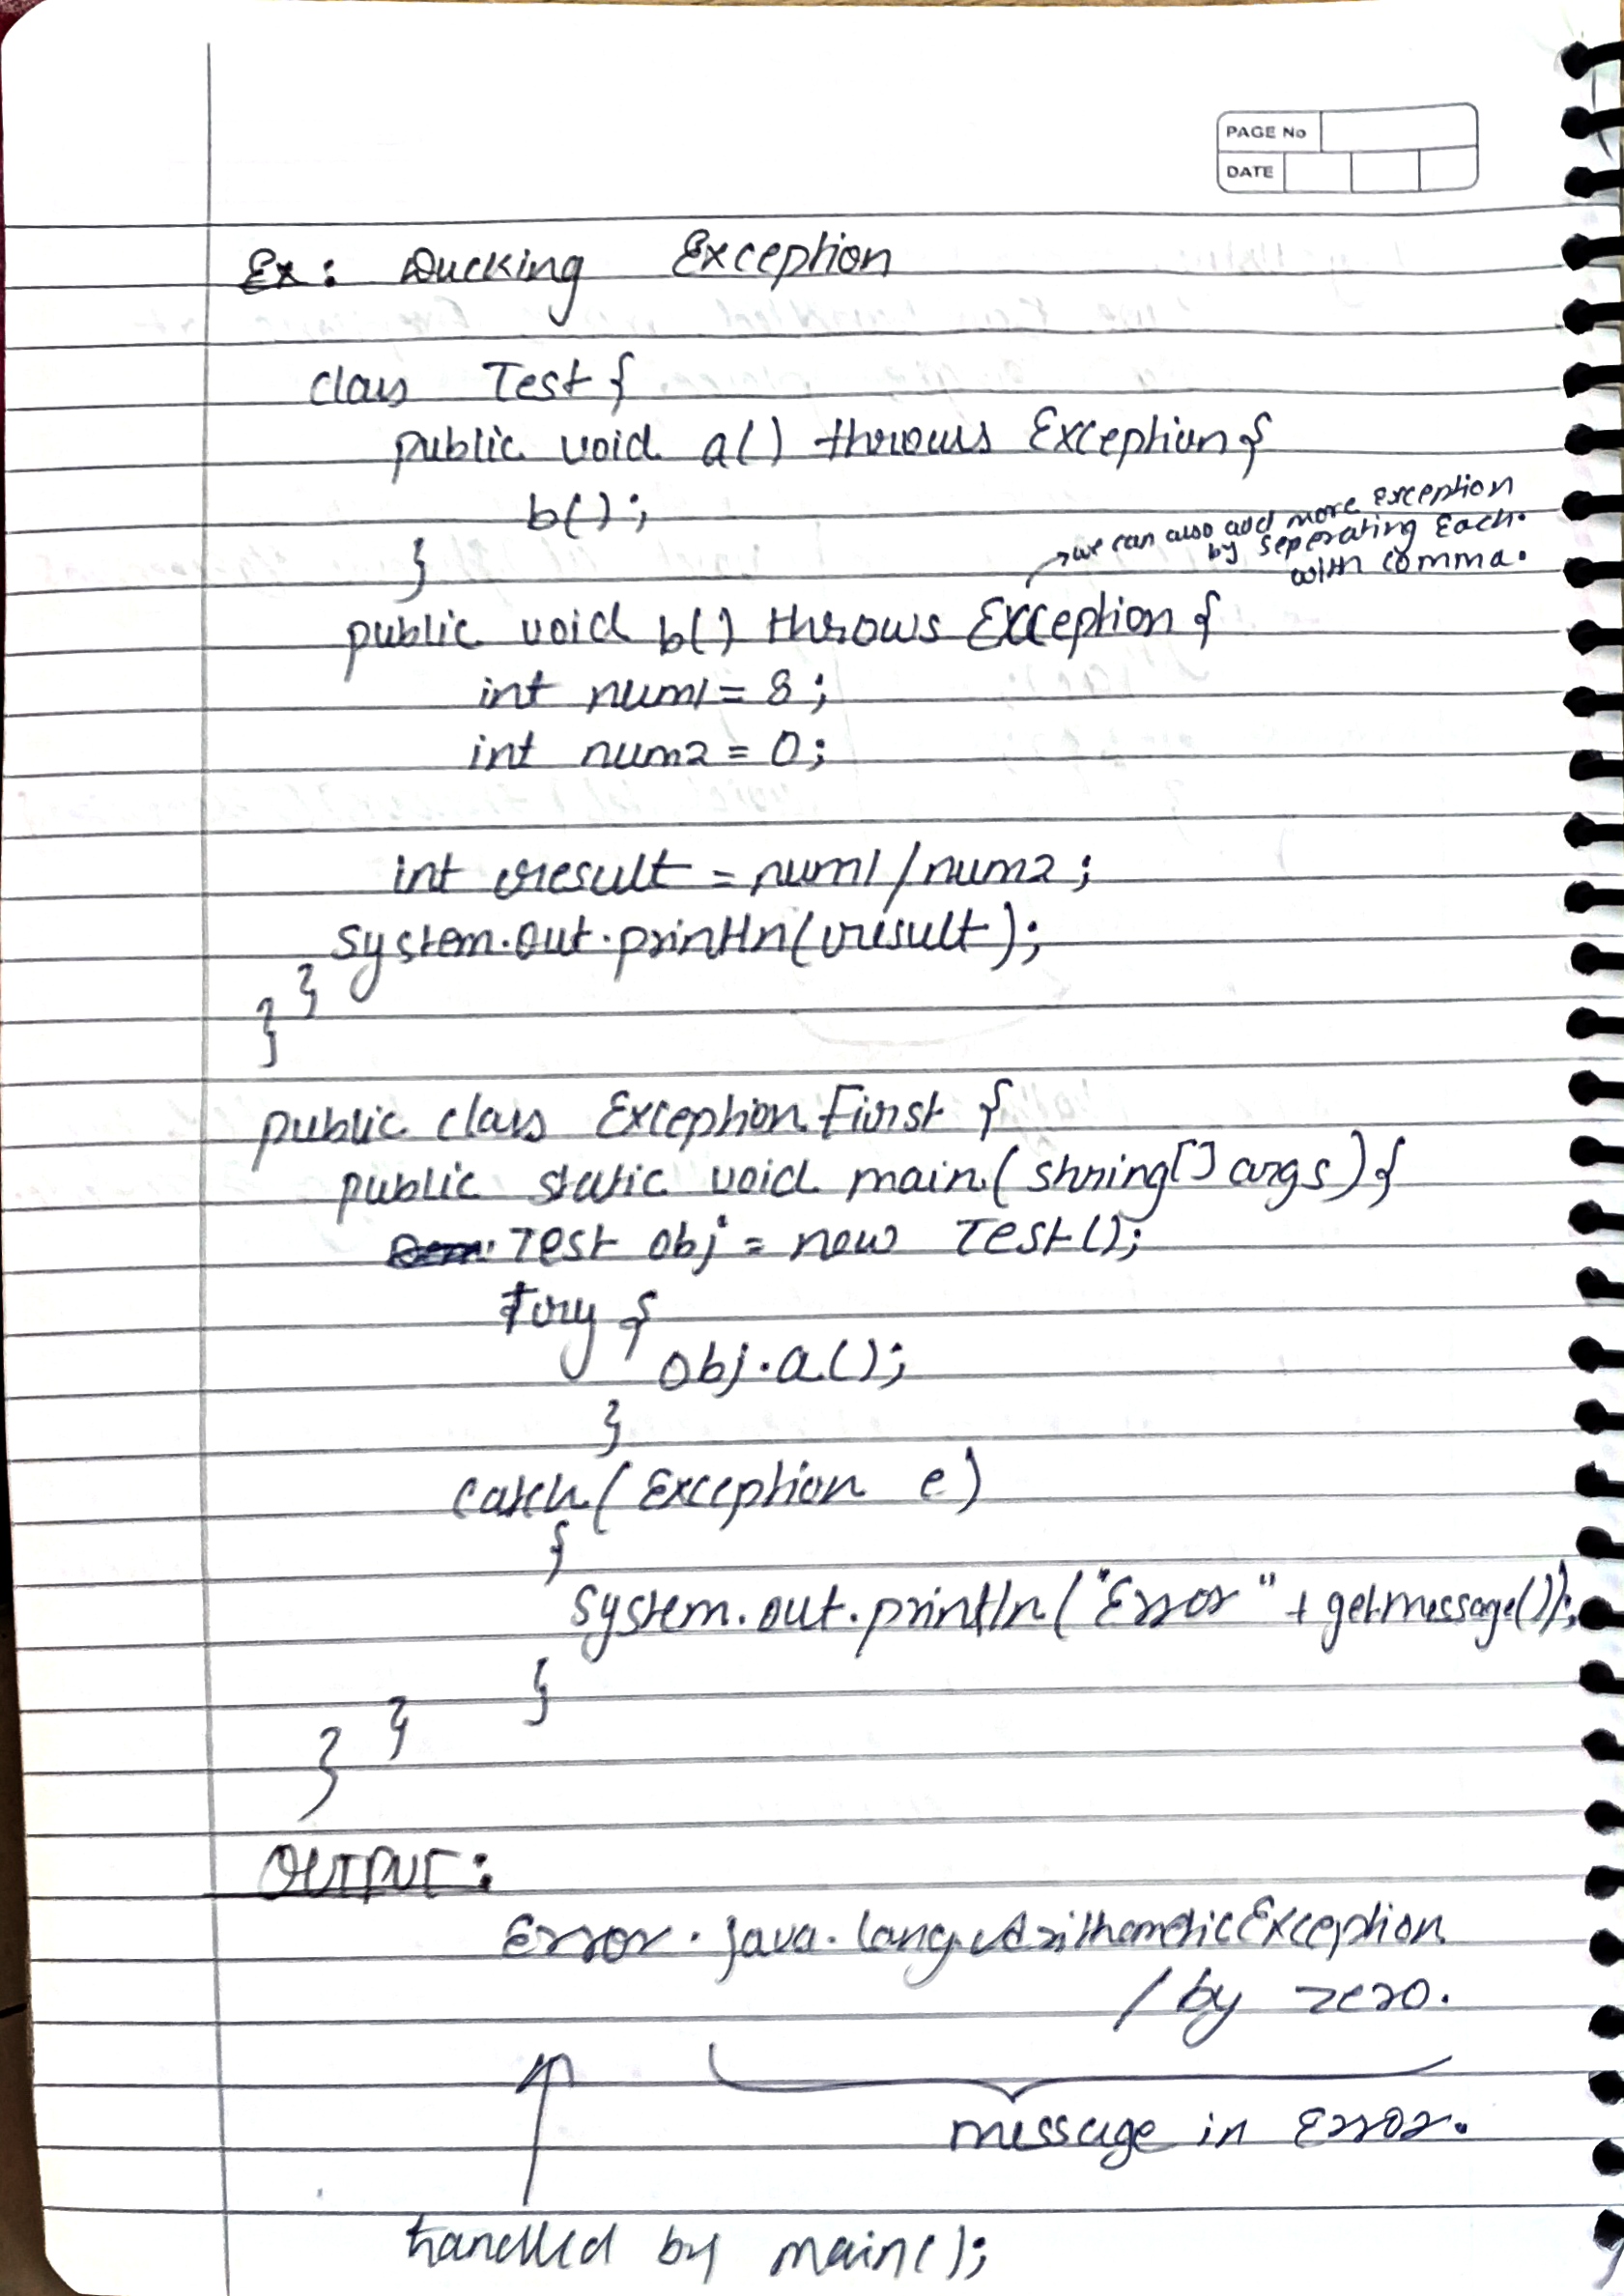 PAGE No
DATE
Ex: Ducking Exception
class Test {
public void a() throws Exception {
b();
}
→ we can also add more exception
by seperating Each.
with comma.
public void b() throws Exception {
int num1 = 8;
int num2 = 0;
int result = num1 / num2;
System.out.println(result);
}
}
public class Exception First {
public static void main(string[] args) {
Test obj = new Test();
try {
obj.a();
}
catch (Exception e)
{
System.out.println("Error" + getmessage());
}
}
}
OUTPUT:
Error . java.lang.ArithemeticException
/ by zero.
message in Error.
handled by main();